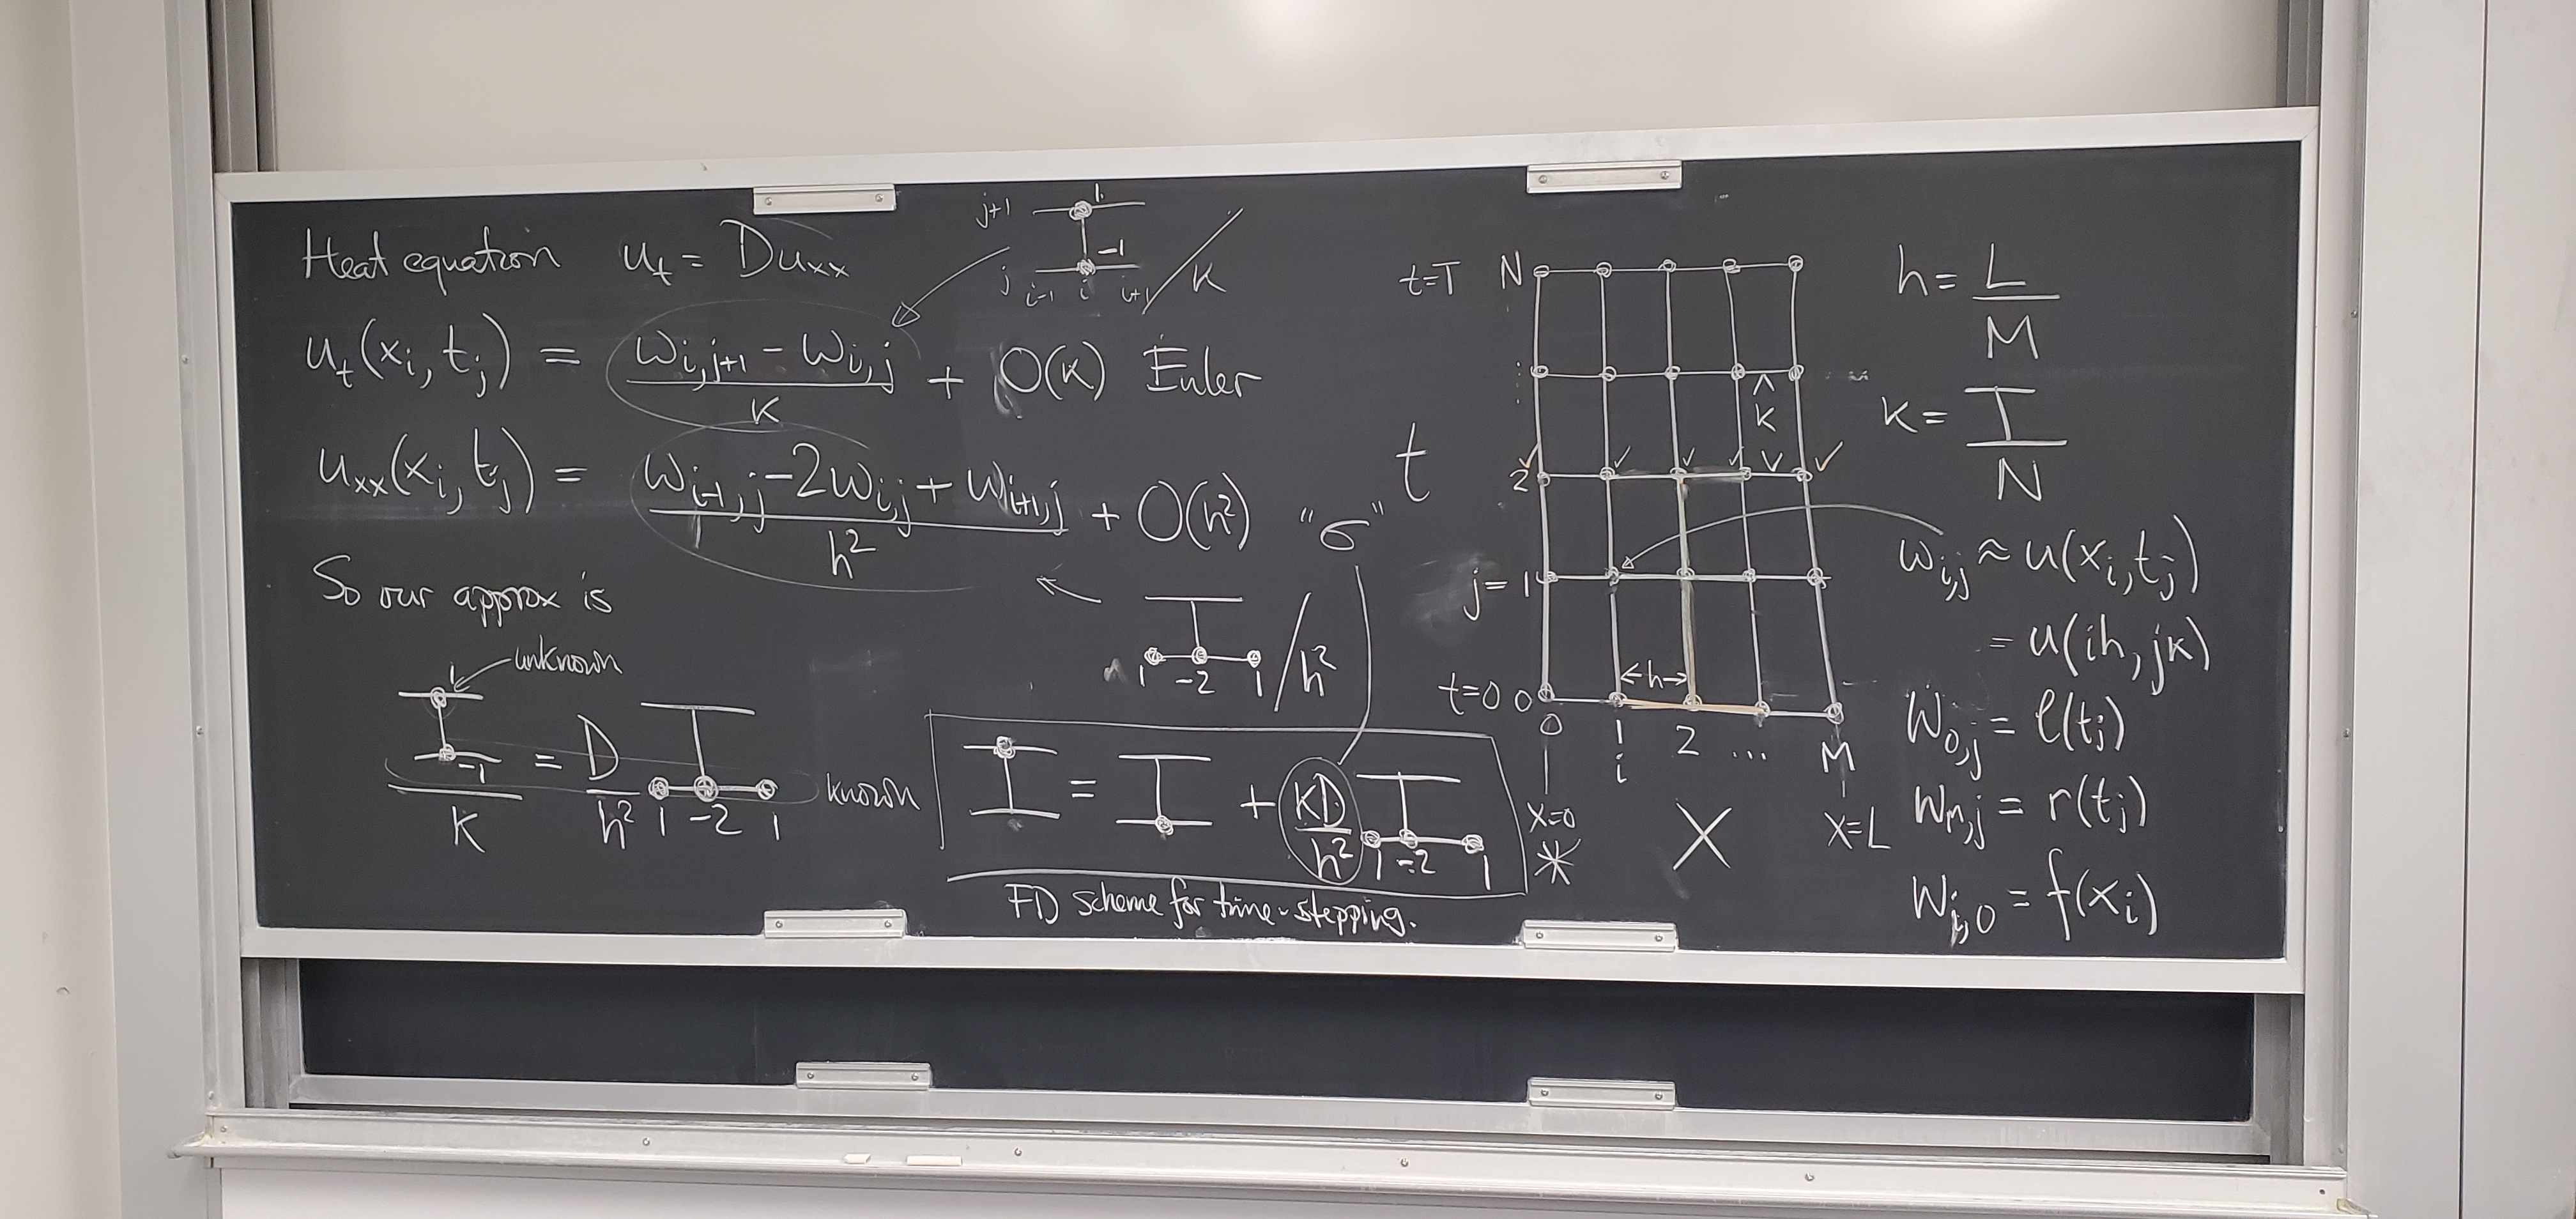 Heat equation u_t = Du_xx
j+1 1
-1
j i-1 i i+1 / k
u_t(x_i, t_j) = (w_i,j+1 - w_i,j)/k + O(k) Euler
u_xx(x_i, t_j) = (w_i-1,j - 2w_i,j + w_i+1,j)/h² + O(h²) "σ"
1 -2 1 / h²
So our approx is
1 unknown
-1
k
= D/h² 1 -2 1 known
= + kD/h² 1 -2 1
FD scheme for time-stepping.
t=T N
⋮
k
t 2
j = 1
←h→
t=0 0
0 1 2 ... M
i
x=0 x x=L
*
h = L/M
k = T/N
w_i,j ≈ u(x_i, t_j)
= u(ih, jk)
w_0,j = l(t_j)
w_m,j = r(t_j)
w_i,0 = f(x_i)